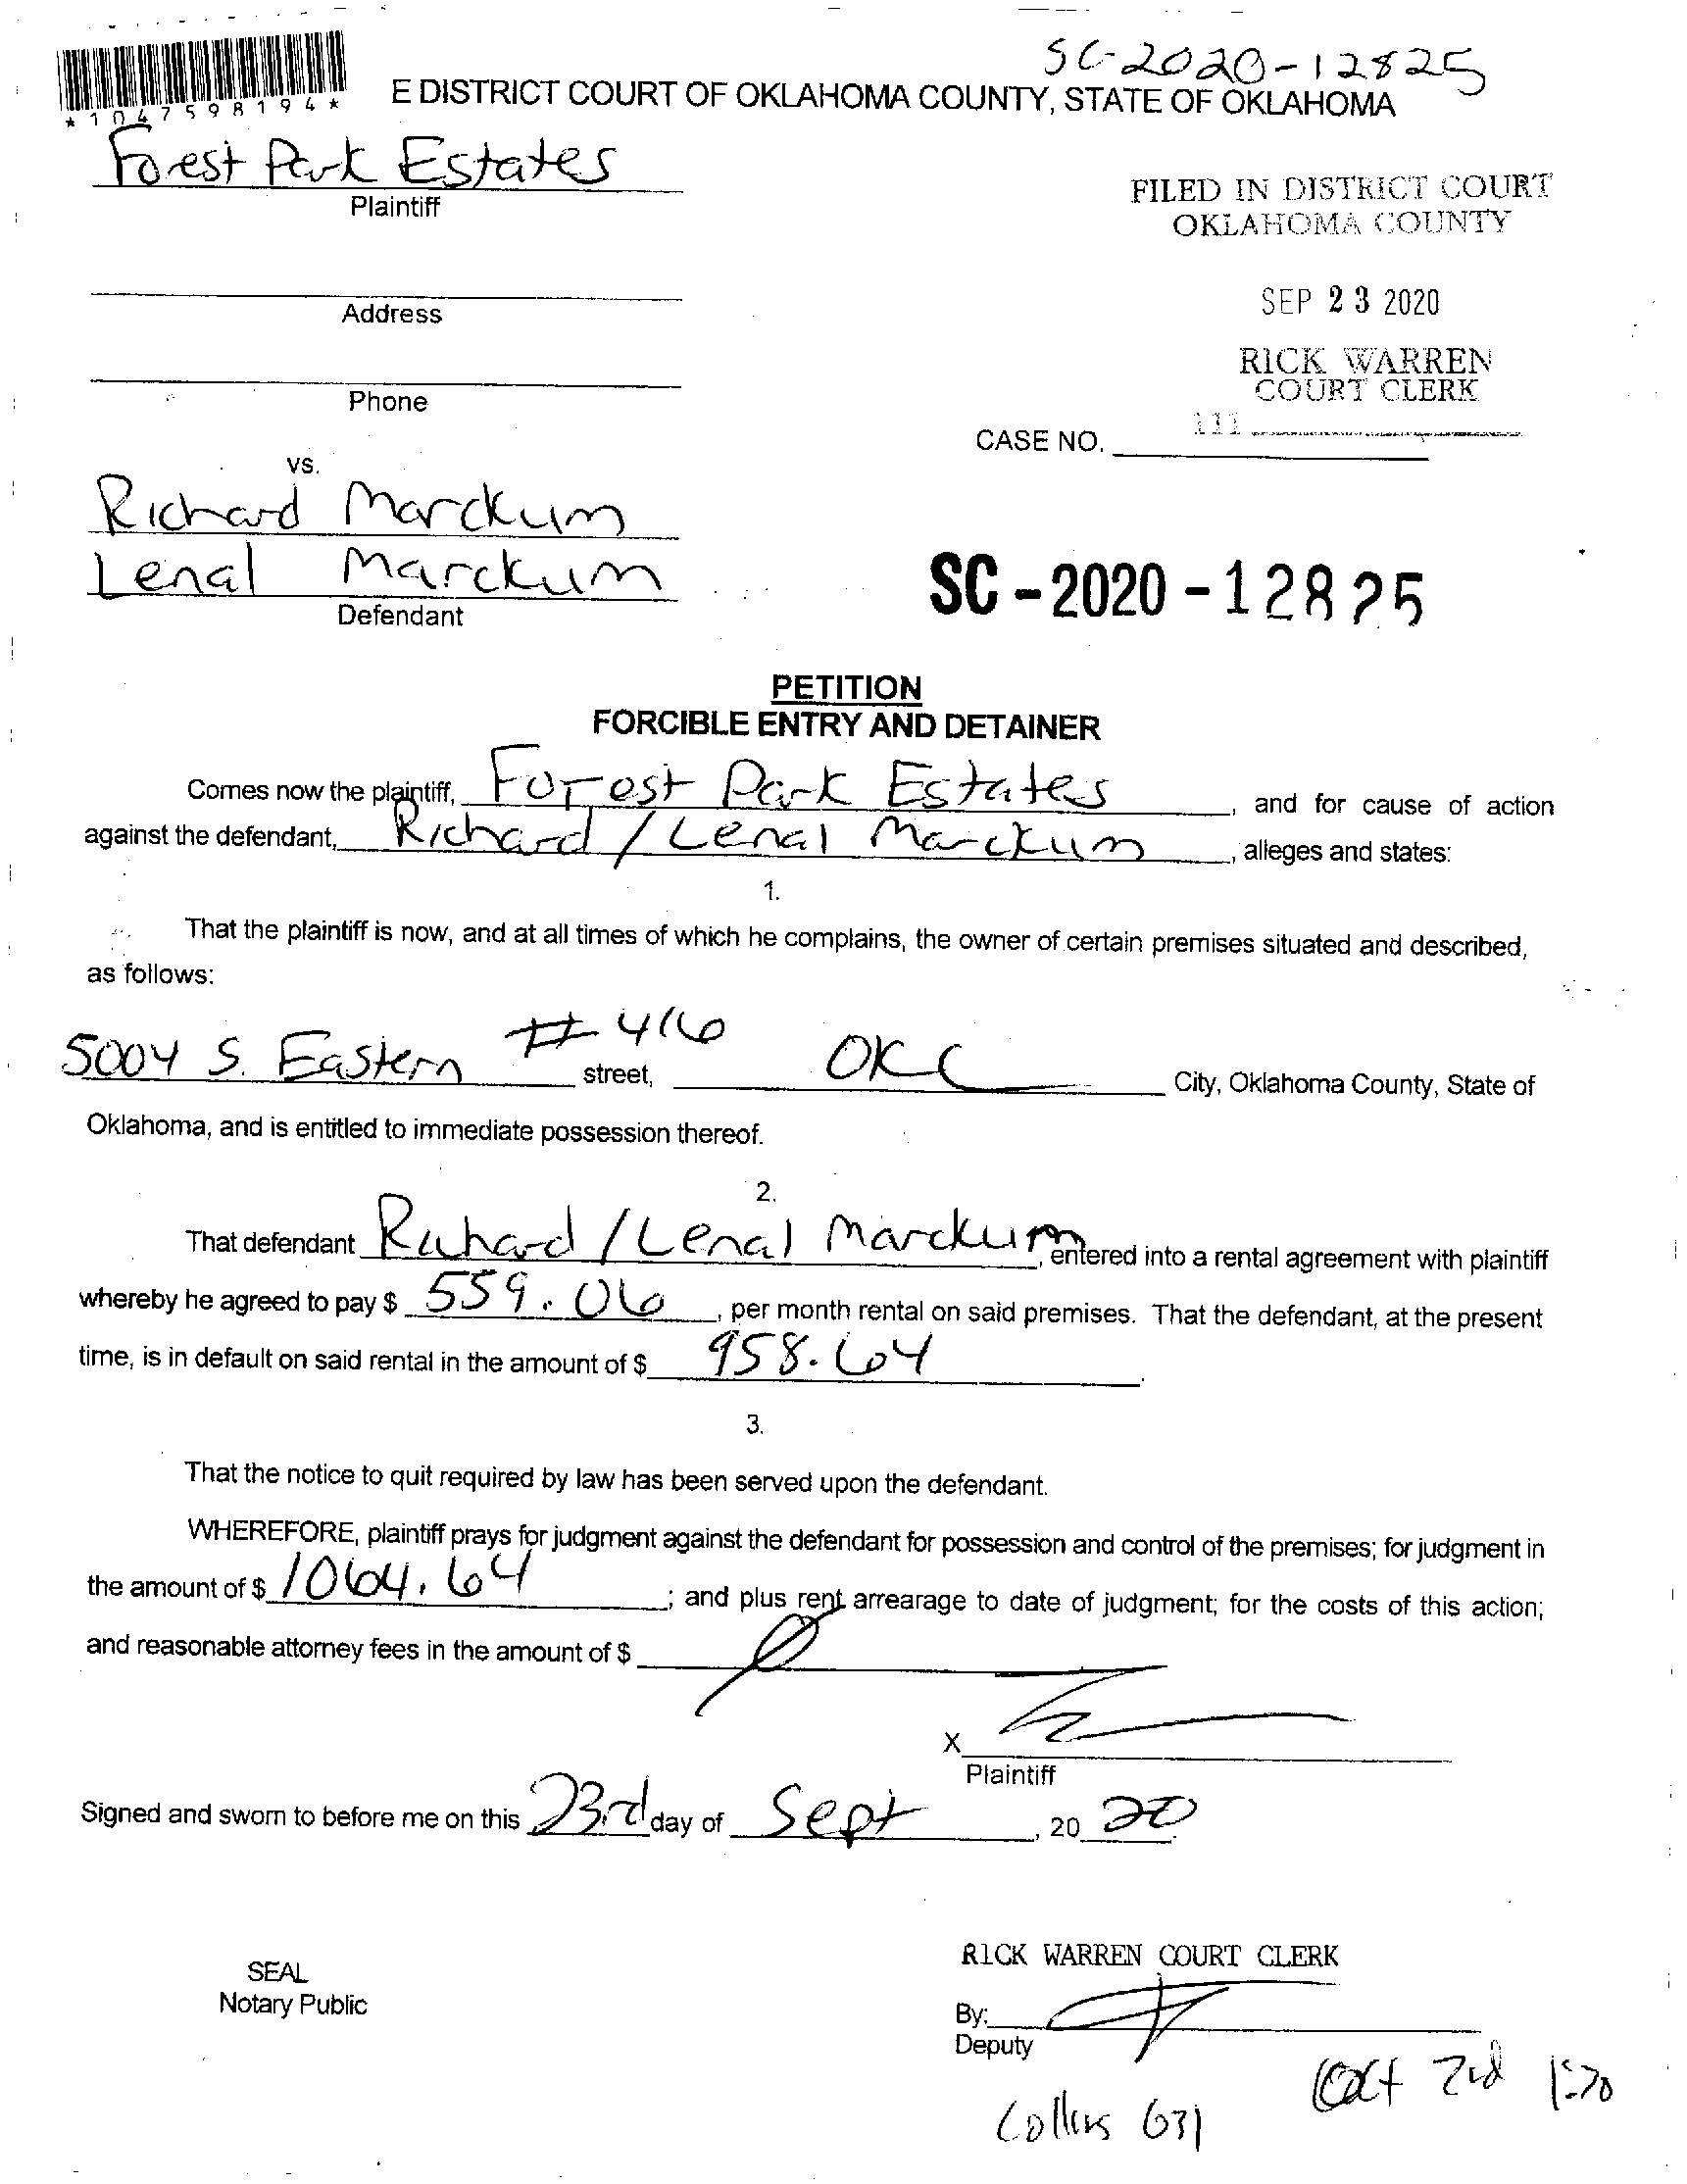 SC-2020-12825
*1047598194*
E DISTRICT COURT OF OKLAHOMA COUNTY, STATE OF OKLAHOMA
Forest Park Estates
Plaintiff
FILED IN DISTRICT COURT
OKLAHOMA COUNTY
Address
SEP 23 2020
RICK WARREN
COURT CLERK
Phone
111
CASE NO.
vs.
Richard Marckum
Lenal Marckum
Defendant
SC-2020-12825
PETITION
FORCIBLE ENTRY AND DETAINER
Comes now the plaintiff, Forest Park Estates, and for cause of action
against the defendant, Richard / Lenal Marckum, alleges and states:
1.
That the plaintiff is now, and at all times of which he complains, the owner of certain premises situated and described,
as follows:
5004 S. Eastern # 416 street, OKC City, Oklahoma County, State of
Oklahoma, and is entitled to immediate possession thereof.
2.
That defendant Richard / Lenal Marckum, entered into a rental agreement with plaintiff
whereby he agreed to pay $ 559.06, per month rental on said premises. That the defendant, at the present
time, is in default on said rental in the amount of $ 958.64.
3.
That the notice to quit required by law has been served upon the defendant.
WHEREFORE, plaintiff prays for judgment against the defendant for possession and control of the premises; for judgment in
the amount of $ 1064.64; and plus rent arrearage to date of judgment; for the costs of this action;
and reasonable attorney fees in the amount of $ 0
X
Plaintiff
Signed and sworn to before me on this 23rd day of Sept, 20 20
SEAL
Notary Public
RICK WARREN COURT CLERK
By:
Deputy
Oct 2nd 1:30
Collins 631